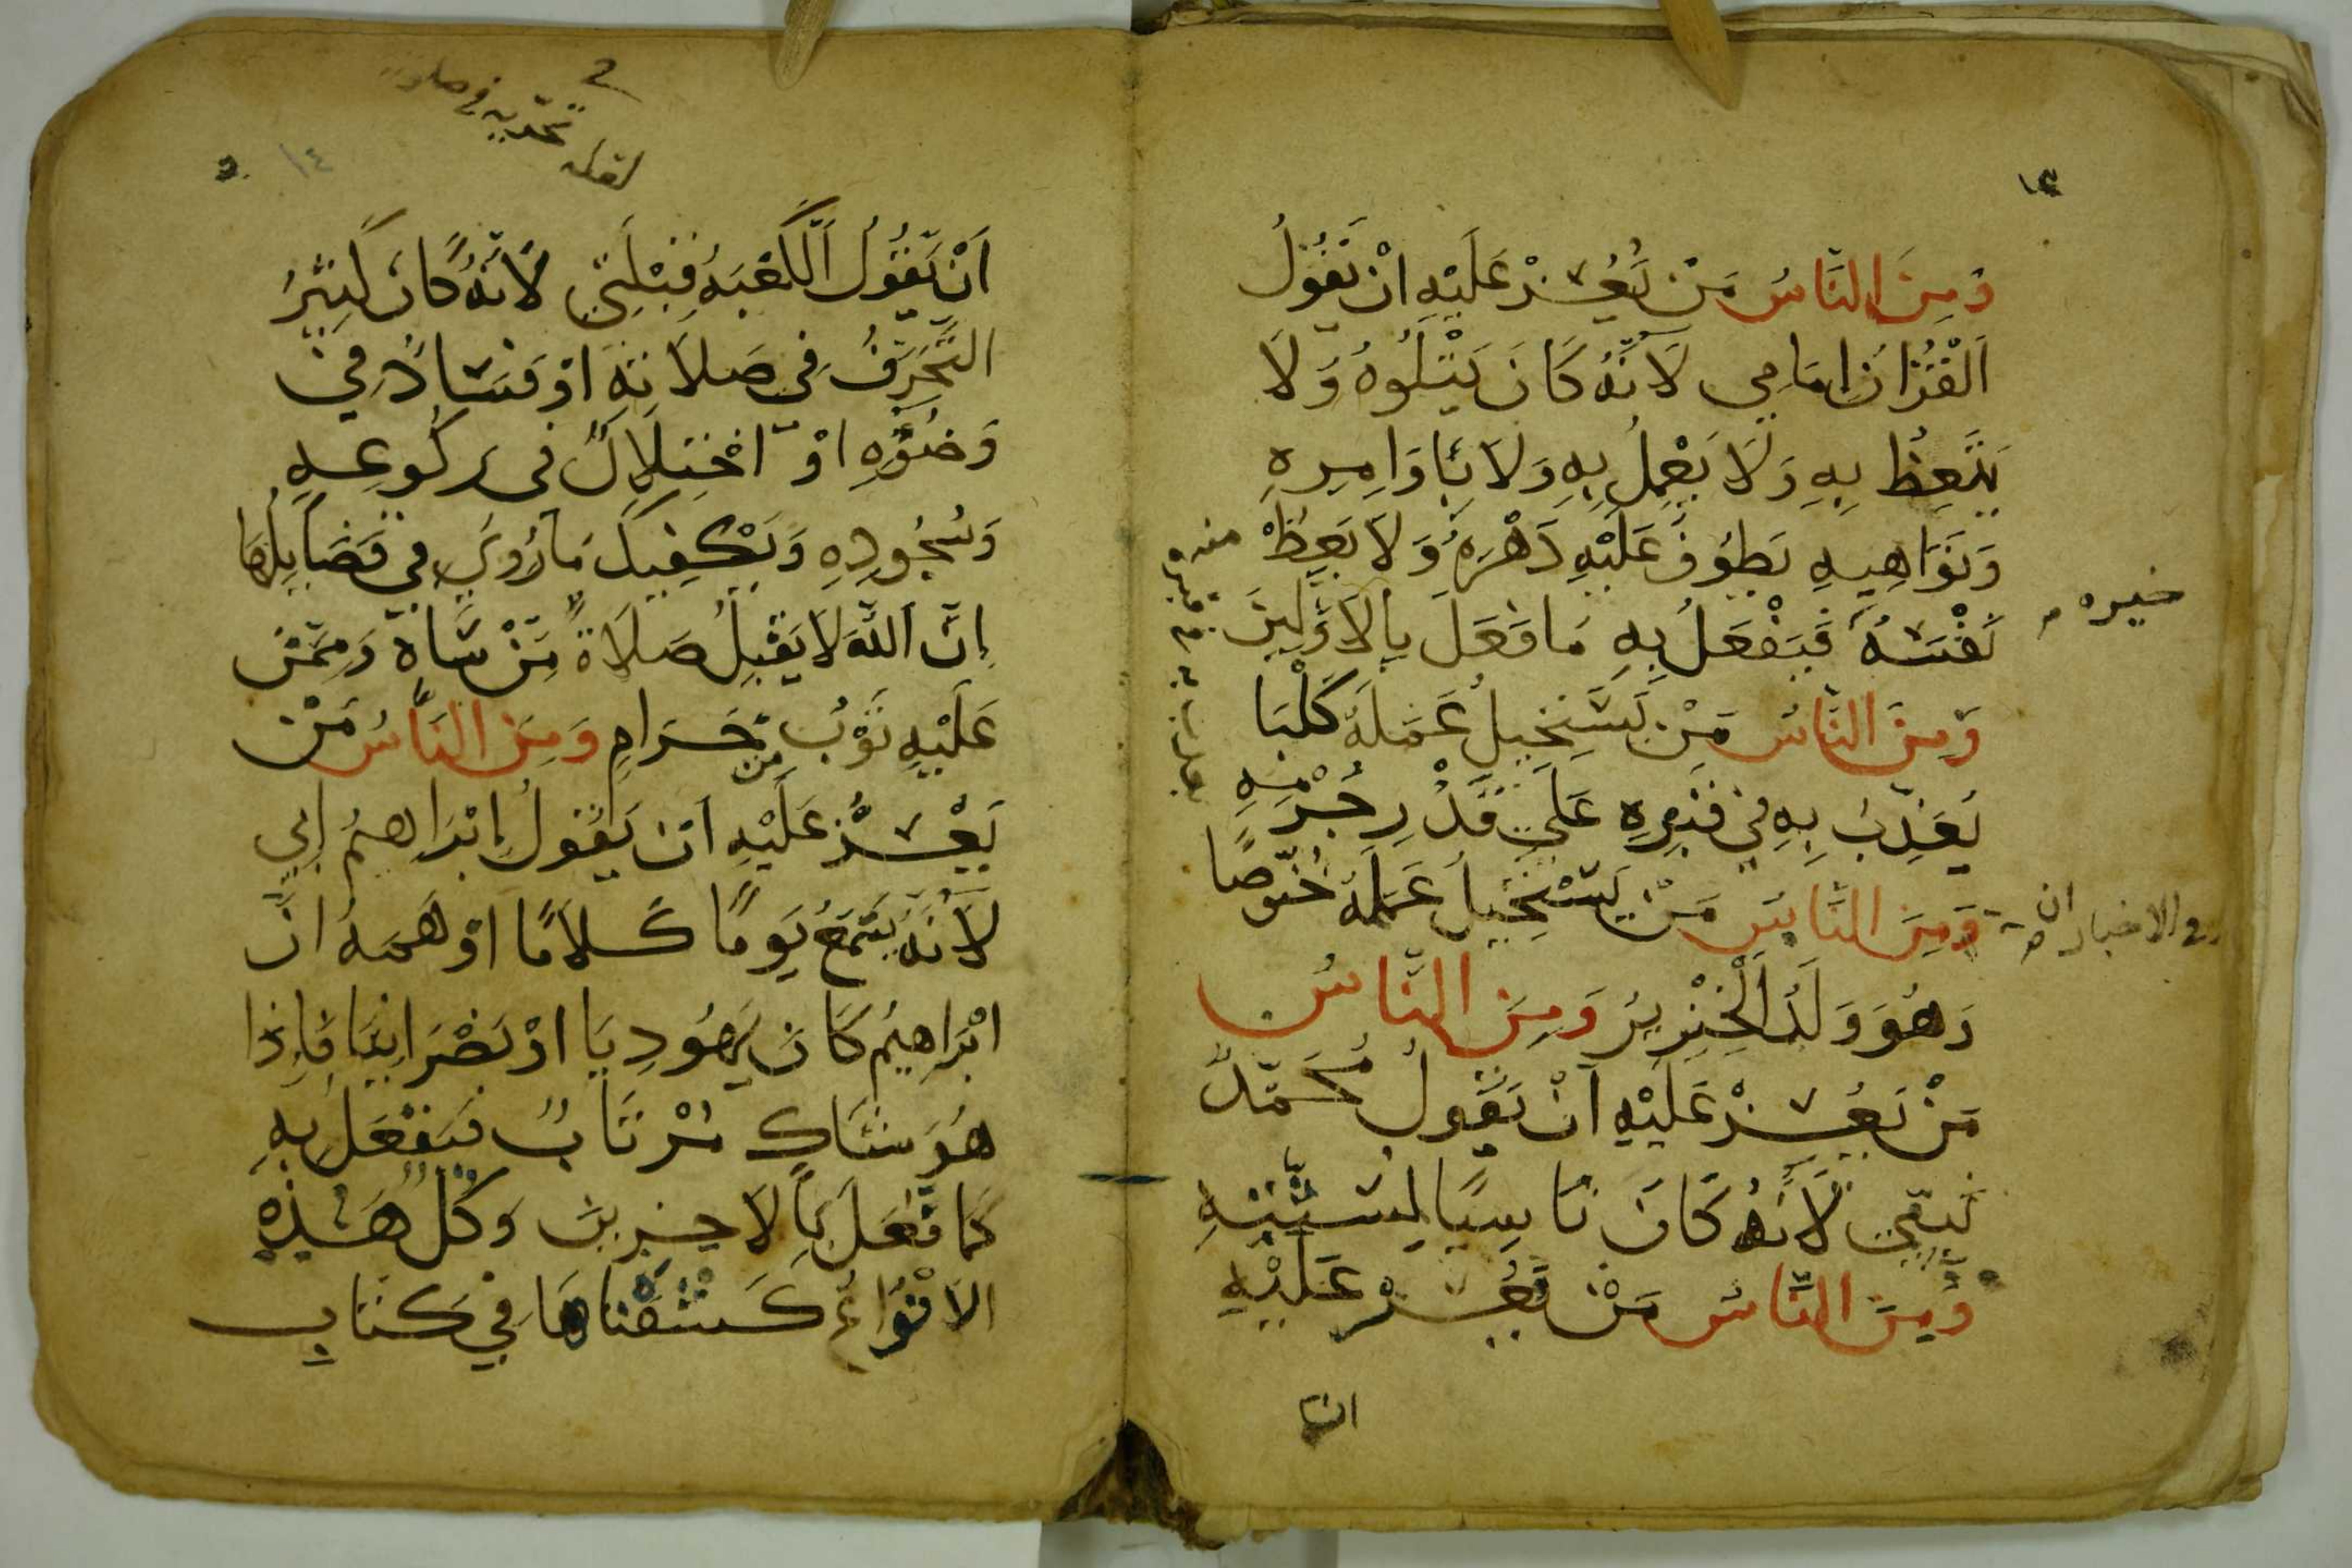 وَمِنَ النَّاسِ مَنْ يَعْسُرُ عَلَيْهِ اَنْ يَقُولُ
اَلْقُرْانُ اِمَامِي لَاَنَّهُ كَانَ يَتْلُوهُ وَلَا
يَتَّعِظُ بِهِ وَلَا يَعْمِلُ بِهِ وَلَا بِاَوَامِرِهِ
وَنَوَاهِيهِ يَطُوُفُ عَلَيْهِ دَهْرَهُ وَلَا يَعِظْ
نَفْسَهُ فَيَفْعَلُ بِهِ مَا فَعَلَ بِالاَوَّلِينَ
وَمِنَ النَّاسِ مَنْ يَسْتَحِيلُ عَمَلَهُ كَلْبًا
يُعَذِّبُ بِهِ فِي قَبْرِهِ عَلَى قَدْرِ جُرْمِهِ
وَمِنَ النَّاسِ مَنْ يَسْتَحِيلُ عَمَلَهُ خُنُّوصًا
وَهُوَ وَلَدُ الْخِنْزِيرُ وَمِنَ النَّاسِ
مَنْ يَعْسُرُ عَلَيْهِ اَنْ يَقُولُ مُحَمَّدٌ
نَبِيِّى لَاَنَّهُ كَانَ نَاسِيًا لِسُنَّتِهِ
وَمِنَ النَّاسِ مَنْ يَعْسُرُ عَلَيْهِ
ان
خيره
في الاخبار ان
منه
اَنْ يَقُولُ اَلْكَعْبَةُ قِبْلَتِي لَاَنَّهُ كَانَ كَثِيرُ
التَّحَرِّفُ فِي صَلَاتِهِ اَوْ فَسَادُ فِي
وَضُوُهِ اَوْ اخْتِلَالٌ فى رَكُوعِهِ
وَسُجُودِهِ وَيَكْفِيكَ مَا رُوِيَ فِي فَضَايِلِهَا
اِنَّ اللَّهَ لَا يَقْبِلُ صَلَاةً مَنْ سَاهٍ وَمِمَّنْ
عَلَيْهِ ثَوْبُ مِن حَرَامٍ وَمِنَ النَّاسِ مَنْ
يَعْسُرُ عَلَيْهِ اَنْ يَقُولُ اِبْرَاهِيمُ اَبِي
لَاَنَّهُ يَسْمَعُ يَوْمًا كَلَامًا اَوْهَمَهُ انَّ
ابْرَاهِيمُ كَانَ يَهُودِيَا اَوْ نَصْرَانِيَا فَاِذَا
هُوَ شَاكٍ مُرْتَابٌ فَيَفْعَلُ بِهِ
كَمَا فَعَلَ بِالاَخِرِينَ وَكُلُّ هَذِهِ
الاَنْوَاعُ كَشَفْنَاهَا فِي كِتَابِ